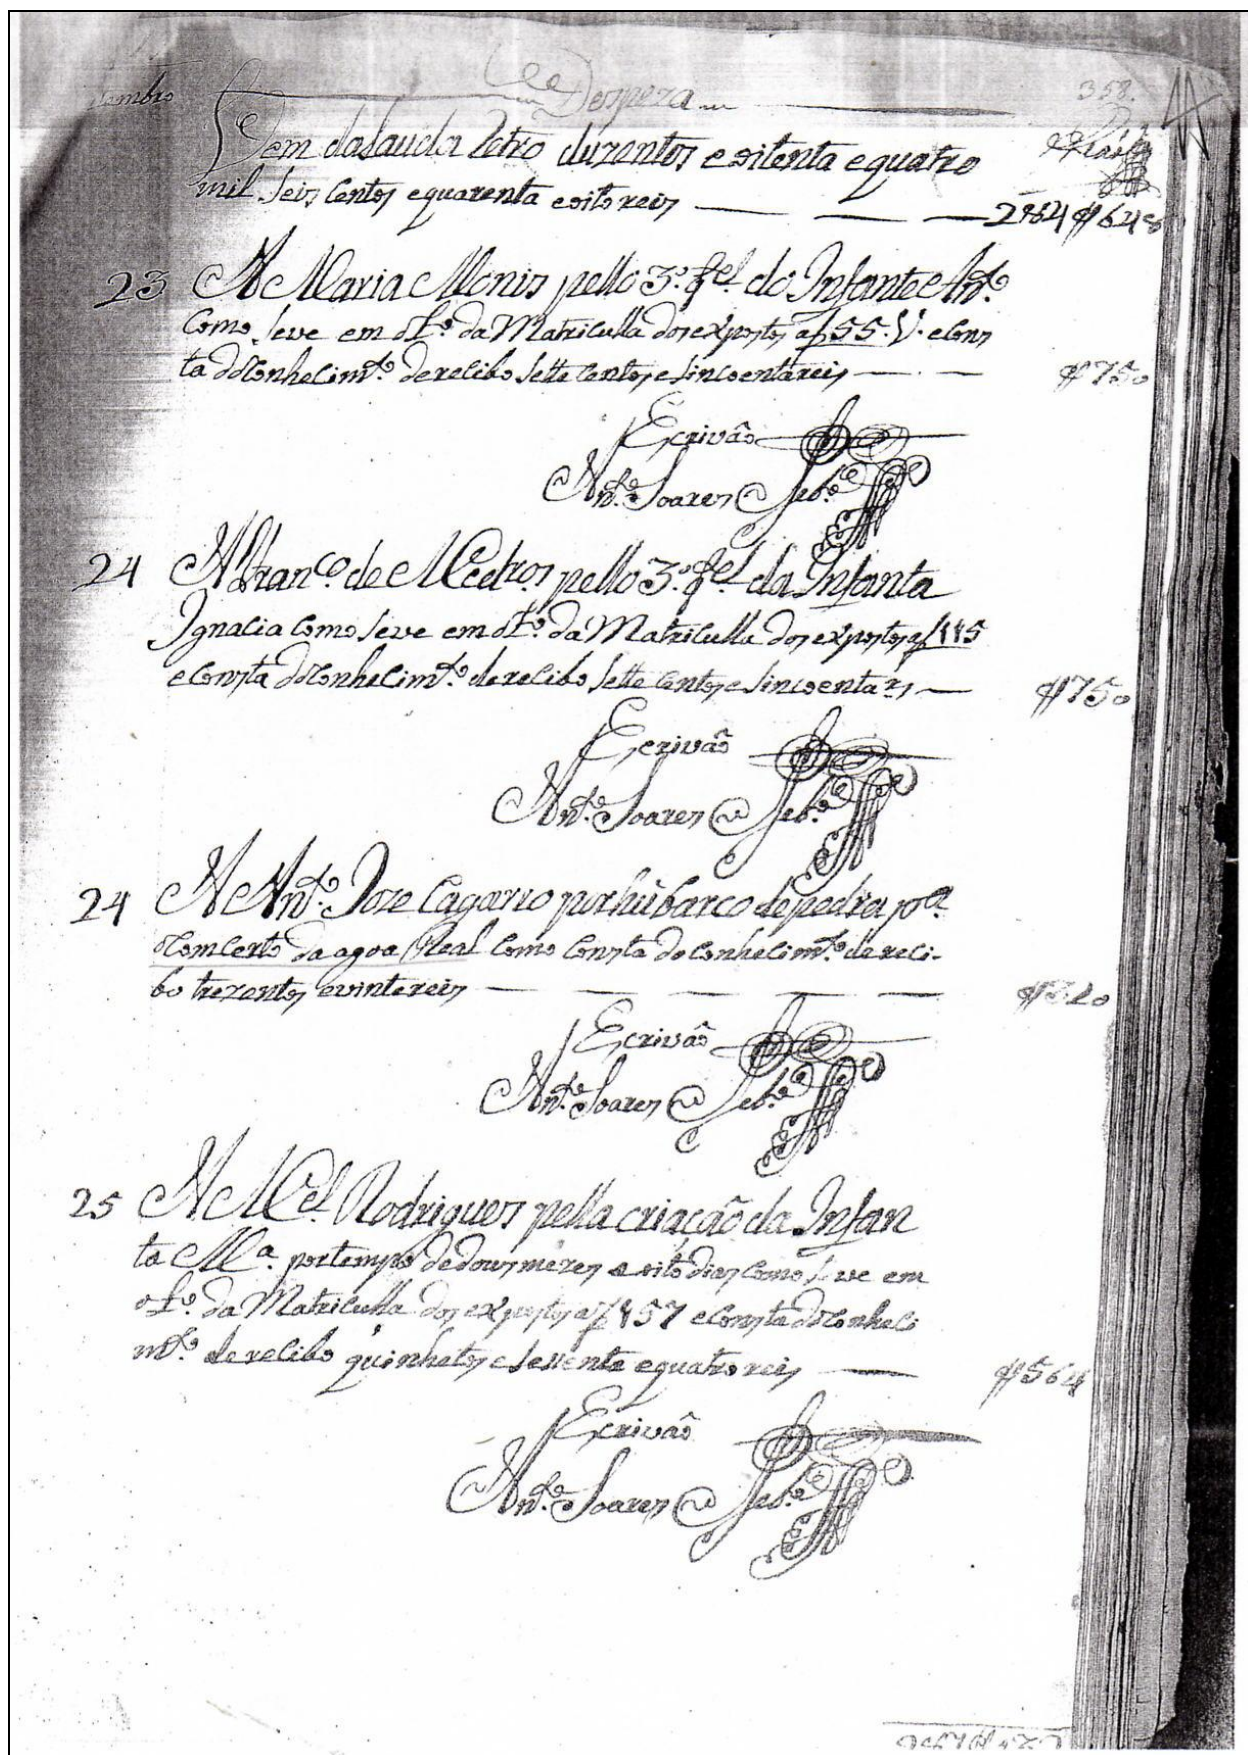 Despeza
358.
Vem da lauda retro duzentos e oitenta e quatro
mil seis centos e quarenta e oito reis 284$648
23 A Maria Monis pello 3.º q.el do Infante An.to
Como se ve em o L.º da Matriculla dos expostos a f 55. V. e Cons
ta do Conhecim.to de recibo sette centos e sincoenta reis $750
Escrivão
An.to Soares
24 A Fran.co de Medros pello 3.º q.el da Infanta
Ignacia Como se ve em o L.º da Matriculla dos expostos a f 115
e Consta do Conhecim.to de recibo sette centos e sincoenta rs $750
Escrivão
An.to Soares
24 A An.to Joze Cagarro por hũ barco de pedra p.a
o Comcerto da agoa Real Como Consta do Conhecim.to de reci-
bo trezentos e vinte reis $320
Escrivão
An.to Soares
25 A M.el Rodrigues pella criação da Infan
ta M.a por tempo de dous mezes e oito dias Como se ve em
o L.º da Matriculla dos expostos a f 157 e Consta do Conheci
m.to de recibo quinhetos e sessenta e quatro reis $564
Escrivão
An.to Soares